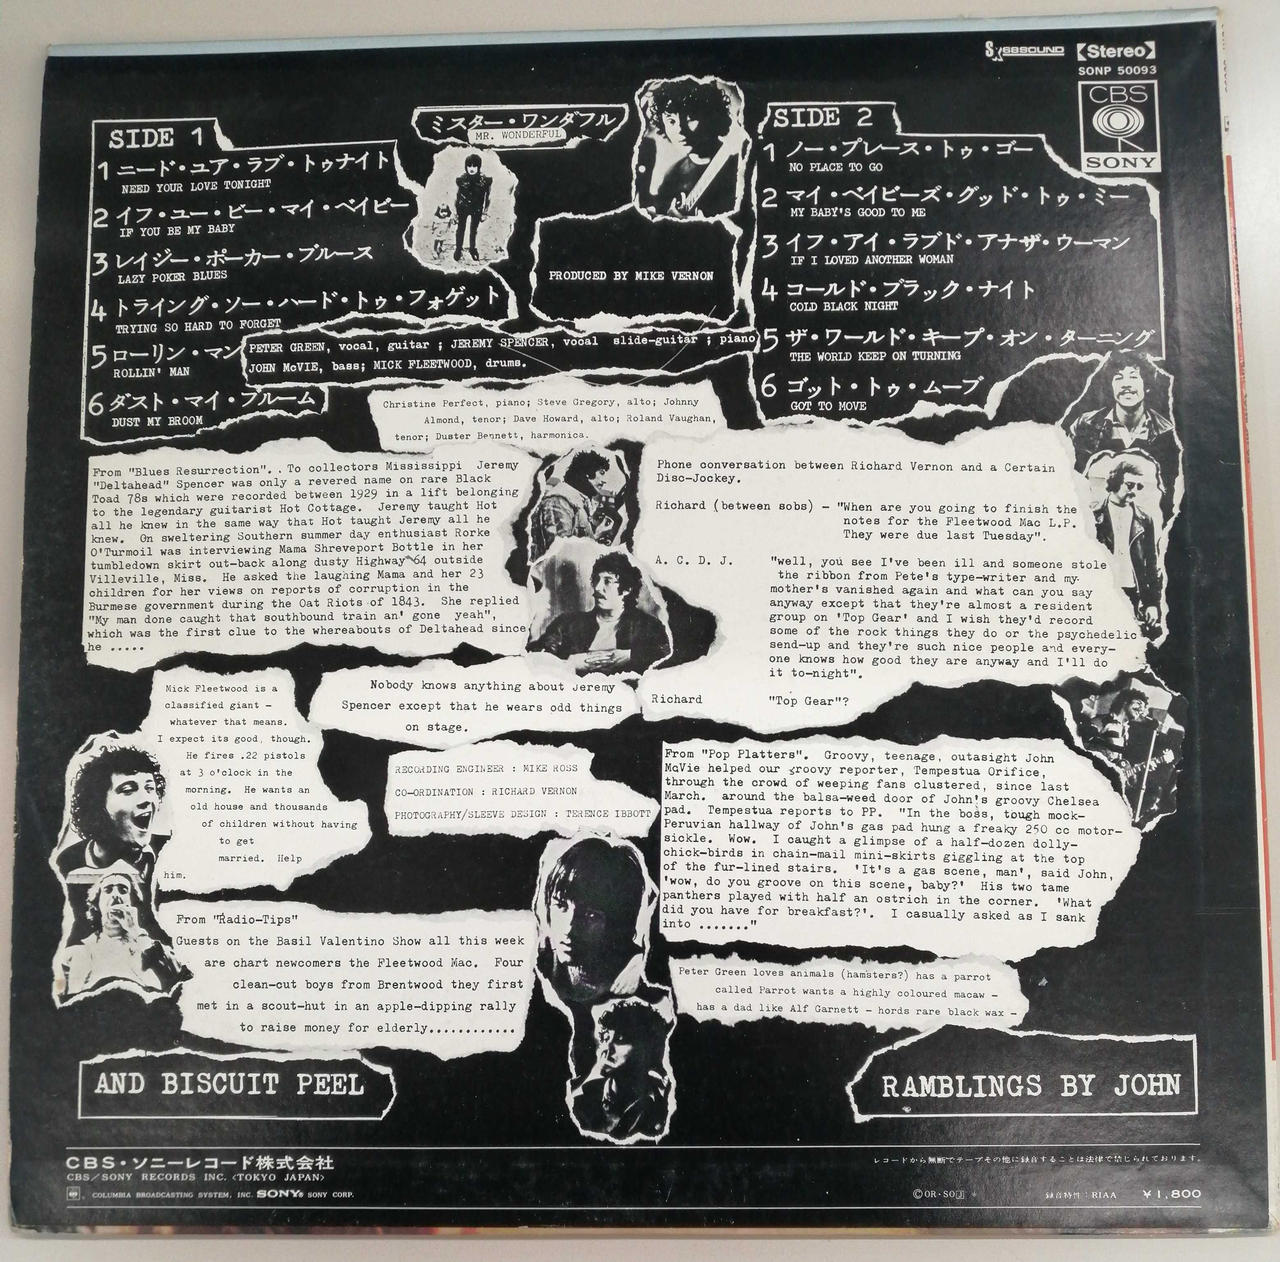 SX68SOUND
【Stereo】
SONP 50093
CBS
SONY
SIDE 1
1 ニード・ユア・ラブ・トゥナイト
NEED YOUR LOVE TONIGHT
2 イフ・ユー・ビー・マイ・ベイビー
IF YOU BE MY BABY
3 レイジー・ポーカー・ブルース
LAZY POKER BLUES
4 トライング・ソー・ハード・トゥ・フォゲット
TRYING SO HARD TO FORGET
5 ローリン・マン
ROLLIN' MAN
6 ダスト・マイ・ブルーム
DUST MY BROOM
ミスター・ワンダフル
MR. WONDERFUL
PRODUCED BY MIKE VERNON
SIDE 2
1 ノー・プレース・トゥ・ゴー
NO PLACE TO GO
2 マイ・ベイビーズ・グッド・トゥ・ミー
MY BABY'S GOOD TO ME
3 イフ・アイ・ラブド・アナザ・ウーマン
IF I LOVED ANOTHER WOMAN
4 コールド・ブラック・ナイト
COLD BLACK NIGHT
5 ザ・ワールド・キープ・オン・ターニング
THE WORLD KEEP ON TURNING
6 ゴット・トゥ・ムーブ
GOT TO MOVE
PETER GREEN, vocal, guitar ; JEREMY SPENCER, vocal slide-guitar ; piano
JOHN McVIE, bass; MICK FLEETWOOD, drums.
Christine Perfect, piano; Steve Gregory, alto; Johnny
Almond, tenor; Dave Howard, alto; Roland Vaughan,
tenor; Duster Bennett, harmonica.
From "Blues Resurrection". . To collectors Mississippi Jeremy
"Deltahead" Spencer was only a revered name on rare Black
Toad 78s which were recorded between 1929 in a lift belonging
to the legendary guitarist Hot Cottage. Jeremy taught Hot
all he knew in the same way that Hot taught Jeremy all he
knew. On sweltering Southern summer day enthusiast Rorke
O'Turmoil was interviewing Mama Shreveport Bottle in her
tumbledown skirt out-back along dusty Highway 64 outside
Villeville, Miss. He asked the laughing Mama and her 23
children for her views on reports of corruption in the
Burmese government during the Oat Riots of 1843. She replied
"My man done caught that southbound train an' gone yeah",
which was the first clue to the whereabouts of Deltahead since
he .....
Phone conversation between Richard Vernon and a Certain
Disc-Jockey.
Richard (between sobs) - "When are you going to finish the
notes for the Fleetwood Mac L.P.
They were due last Tuesday".
A. C. D. J. "well, you see I've been ill and someone stole
the ribbon from Pete's type-writer and my
mother's vanished again and what can you say
anyway except that they're almost a resident
group on 'Top Gear' and I wish they'd record
some of the rock things they do or the psychedelic
send-up and they're such nice people and every-
one knows how good they are anyway and I'll do
it to-night".
Richard "Top Gear"?
Mick Fleetwood is a
classified giant -
whatever that means.
I expect its good, though.
He fires .22 pistols
at 3 o'clock in the
morning. He wants an
old house and thousands
of children without having
to get
married. Help
him.
Nobody knows anything about Jeremy
Spencer except that he wears odd things
on stage.
RECORDING ENGINEER : MIKE ROSS
CO-ORDINATION : RICHARD VERNON
PHOTOGRAPHY/SLEEVE DESIGN : TERENCE IBBOTT
From "Pop Platters". Groovy, teenage, outasight John
McVie helped our groovy reporter, Tempestua Orifice,
through the crowd of weeping fans clustered, since last
March. around the balsa-weed door of John's groovy Chelsea
pad. Tempestua reports to PP. "In the boss, tough mock-
Peruvian hallway of John's gas pad hung a freaky 250 cc motor-
sickle. Wow. I caught a glimpse of a half-dozen dolly-
chick-birds in chain-mail mini-skirts giggling at the top
of the fur-lined stairs. 'It's a gas scene, man', said John,
'wow, do you groove on this scene, baby?' His two tame
panthers played with half an ostrich in the corner. 'What
did you have for breakfast?'. I casually asked as I sank
into ......."
From "Radio-Tips"
Guests on the Basil Valentino Show all this week
are chart newcomers the Fleetwood Mac. Four
clean-cut boys from Brentwood they first
met in a scout-hut in an apple-dipping rally
to raise money for elderly............
Peter Green loves animals (hamsters?) has a parrot
called Parrot wants a highly coloured macaw -
has a dad like Alf Garnett - hords rare black wax -
AND BISCUIT PEEL
RAMBLINGS BY JOHN
CBS・ソニーレコード株式会社
CBS/SONY RECORDS INC. <TOKYO JAPAN>
COLUMBIA BROADCASTING SYSTEM, INC. SONY® SONY CORP.
レコードから無断でテープその他に録音することは法律で禁じられております。
©OR・SO J
録音特性：RIAA ¥1,800